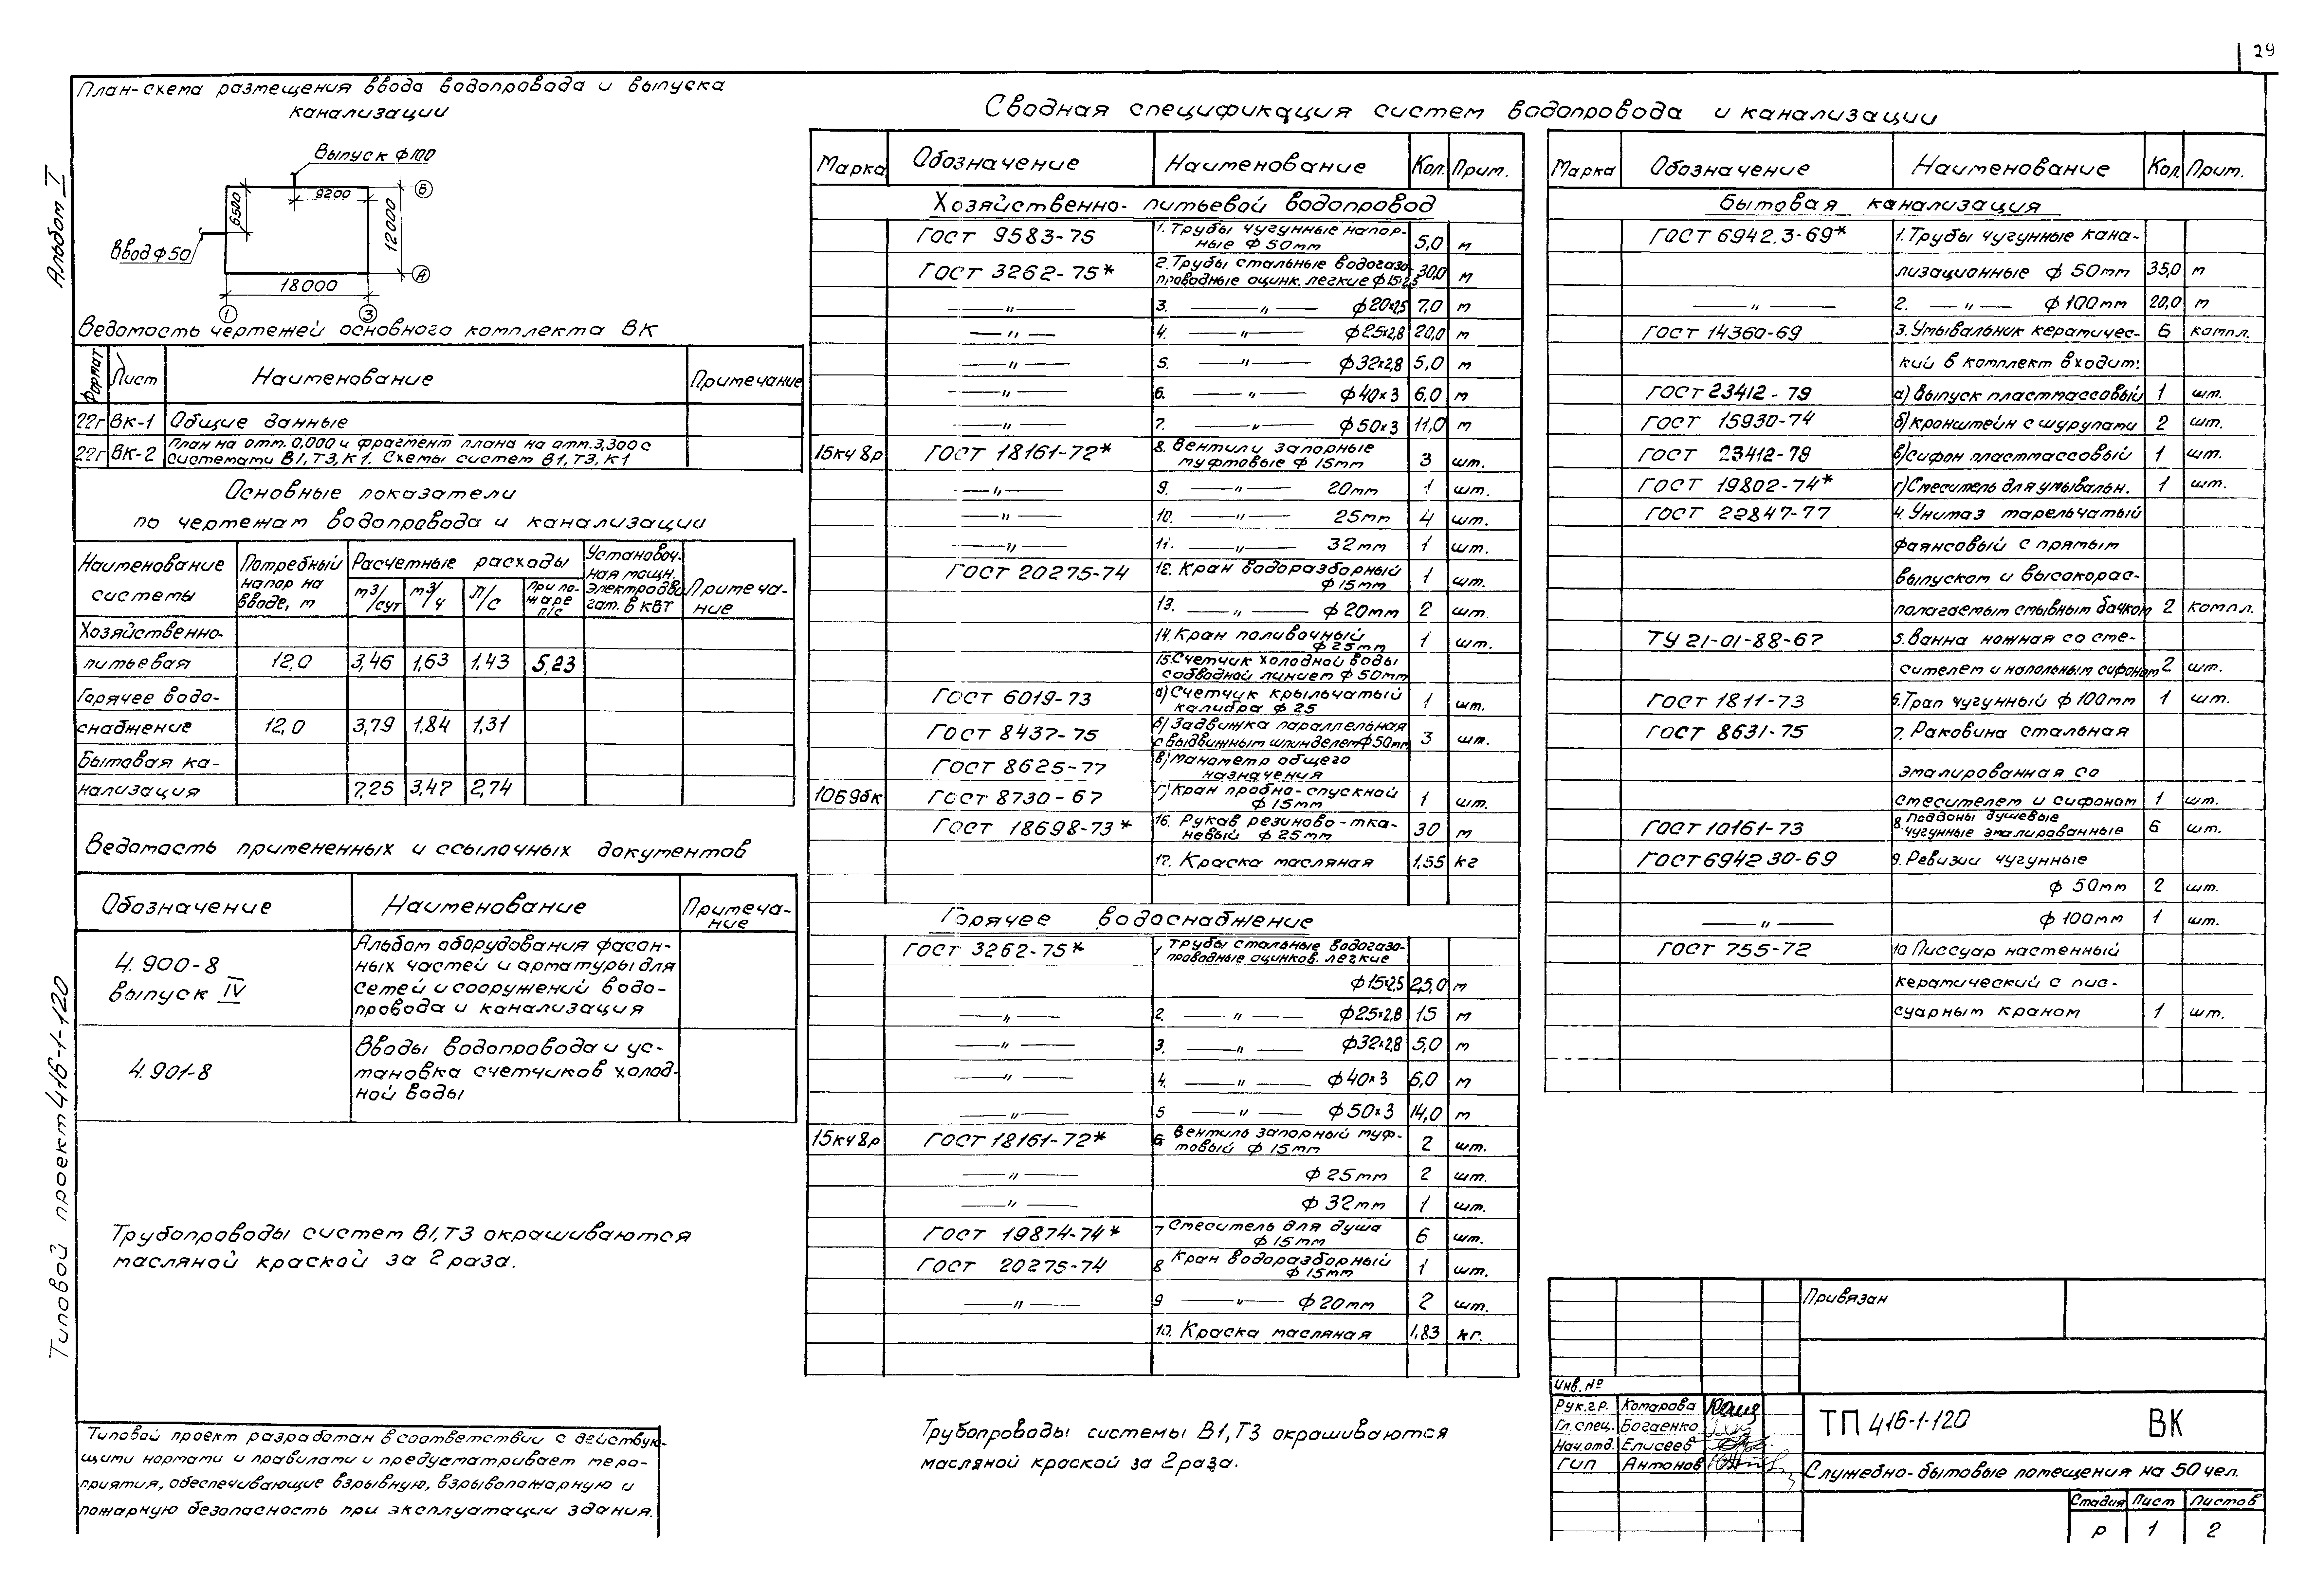 29
Альбом I
Типовой проект 416-1-120
План-схема размещения ввода водопровода и выпуска
канализации
Выпуск ф100
9200
Б
6500
12000
Ввод ф50
А
18000
1
3
Ведомость чертежей основного комплекта ВК
Формат Лист Наименование Примечание
22г ВК-1 Общие данные
22г ВК-2 План на отм. 0,000 и фрагмент плана на отм. 3,300 с
системами В1, Т3, К1. Схемы систем В1, Т3, К1
Основные показатели
по чертежам водопровода и канализации
Наименование системы Потребный напор на вводе, м Расчетные расходы Установоч-ная мощн. электродви-гат. в кВт Примеча-ние
м3/сут м3/ч л/с При по-жаре л/с
Хозяйственно-
питьевая 12,0 3,46 1,63 1,43 5,23
Горячее водо-
снабжение 12,0 3,79 1,84 1,31
Бытовая ка-
нализация 7,25 3,47 2,74
Ведомость примененных и ссылочных документов
Обозначение Наименование Примеча-
ние
4.900-8
выпуск IV
Альбом оборудования фасон-
ных частей и арматуры для
сетей и сооружений водо-
провода и канализация
4.901-8
Вводы водопровода и ус-
тановка счетчиков холод-
ной воды
Трубопроводы систем В1, Т3 окрашиваются
масляной краской за 2 раза.
Типовой проект разработан в соответствии с действую-
щими нормами и правилами и предусматривает меро-
приятия, обеспечивающие взрывную, взрывопожарную и
пожарную безопасность при эксплуатации здания.
Сводная спецификация систем водопровода и канализации
Марка Обозначение Наименование Кол. Прим.
Хозяйственно-питьевой водопровод
ГОСТ 9583-75 1. Трубы чугунные напор-
ные ф 50мм 5,0 м
ГОСТ 3262-75* 2. Трубы стальные водогазо-
проводные оцинк. легкие ф15х2,5 30,0 м
—〃— 3. —〃— ф20х2,5 7,0 м
—〃— 4. —〃— ф25х2,8 20,0 м
—〃— 5. —〃— ф32х2,8 5,0 м
—〃— 6. —〃— ф40х3 6,0 м
—〃— 7. —〃— ф50х3 11,0 м
15кч8р ГОСТ 18161-72* 8. Вентили запорные
муфтовые ф 15мм 3 шт.
—〃— 9. —〃— 20мм 1 шт.
—〃— 10. —〃— 25мм 4 шт.
—〃— 11. —〃— 32мм 1 шт.
ГОСТ 20275-74 12. Кран водоразборный
ф15мм 1 шт.
13. —〃— ф20мм 2 шт.
14. Кран поливочный
ф25мм 1 шт.
15. Счетчик холодной воды
с обводной линией ф 50мм
ГОСТ 6019-73 а) Счетчик крыльчатый
калибра ф 25 1 шт.
ГОСТ 8437-75 б) Задвижка параллельная
с выдвижным шпинделем ф50мм 3 шт.
ГОСТ 8625-77 в) Манометр общего
назначения
10б9бк ГОСТ 8730-67 г) Кран пробно-спускной
ф 15мм 1 шт.
ГОСТ 18698-73* 16. Рукав резиново-тка-
невый ф 25мм 30 м
17. Краска масляная 1,55 кг
Горячее водоснабжение
ГОСТ 3262-75* 1 Трубы стальные водогазо-
проводные оцинков. легкие
ф15х2,5 25,0 м
—〃— 2. —〃— ф25х2,8 15 м
—〃— 3. —〃— ф32х2,8 5,0 м
—〃— 4. —〃— ф40х3 6,0 м
—〃— 5 —〃— ф50х3 14,0 м
15кч8р ГОСТ 18161-72* 6 Вентиль запорный муф-
товый ф 15мм 2 шт.
—〃— ф25мм 2 шт.
—〃— ф 32мм 1 шт.
ГОСТ 19874-74* 7 Смеситель для душа
ф 15мм 6 шт.
ГОСТ 20275-74 8 Кран водоразборный
ф 15мм 1 шт.
—〃— 9 —〃— ф20мм 2 шт.
10. Краска масляная 1,83 кг.
Трубопроводы системы В1, Т3 окрашиваются
масляной краской за 2 раза.
Марка Обозначение Наименование Кол. Прим.
Бытовая канализация
ГОСТ 6942.3-69* 1. Трубы чугунные кана-
лизационные ф 50мм 35,0 м
—〃— 2. —〃— ф 100мм 20,0 м
ГОСТ 14360-69 3. Умывальник керамичес- 6 компл.
кий в комплект входит:
ГОСТ 23412-79 а) Выпуск пластмассовый 1 шт.
ГОСТ 15930-74 б) Кронштейн с шурупами 2 шт.
ГОСТ 23412-79 в) Сифон пластмассовый 1 шт.
ГОСТ 19802-74* г) Смеситель для умывальн. 1 шт.
ГОСТ 22847-77 4. Унитаз тарельчатый
фаянсовый с прямым
выпуском и высокорас-
полагаемым смывным бачком 2 компл.
ТУ 21-01-88-67 5. Ванна ножная со сме-
сителем и напольным сифоном 2 шт.
ГОСТ 1811-73 6. Трап чугунный ф 100мм 1 шт.
ГОСТ 8631-75 7. Раковина стальная
эмалированная со
смесителем и сифоном 1 шт.
ГОСТ 10161-73 8. Поддоны душевые
чугунные эмалированные 6 шт.
ГОСТ 6942 30-69 9. Ревизии чугунные
ф 50мм 2 шт.
—〃— ф 100мм 1 шт.
ГОСТ 755-72 10 Писсуар настенный
керамический с пис-
суарным краном 1 шт.
Привязан
Инв. №
Рук.гр. Комарова
Гл.спец. Богаенко
Нач.отд. Елисеев
ГИП Антонов
ТП 416-1-120 ВК
Служебно-бытовые помещения на 50 чел.
Стадия Лист Листов
Р 1 2